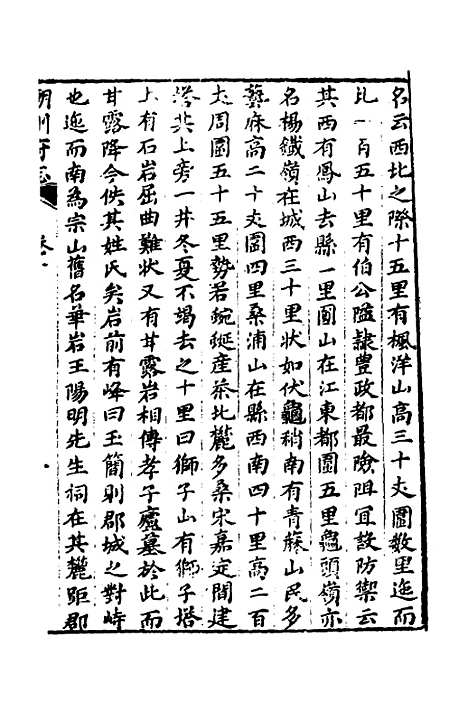 名云西北之際十五里有楓洋山高三十丈圍數里迤而
北一百五十里有伯公隘隷豊政都最險阻宜設防禦云
其西有鳳山去縣一里圓山在江東都圍五里龜頭嶺亦
名楊鐵嶺在城西三十里狀如伏龜稍南有青蔴山民多
藝麻高二十丈圍四里桑浦山在縣西南四十里高二百
丈周圍五十五里勢若蜿蜒產茶北麓多桑宋嘉定間建
塔其上旁一井冬夏不竭去之十里曰獅子山有獅子塔
上有石岩屈曲難狀又有甘露岩相傳孝子廬墓於此而
甘露降今佚其姓氏矣岩前有峰曰玉簡則郡城之對峙
也迤而南為宗山舊名華岩王陽明先生祠在其麓距郡
州府志
卷